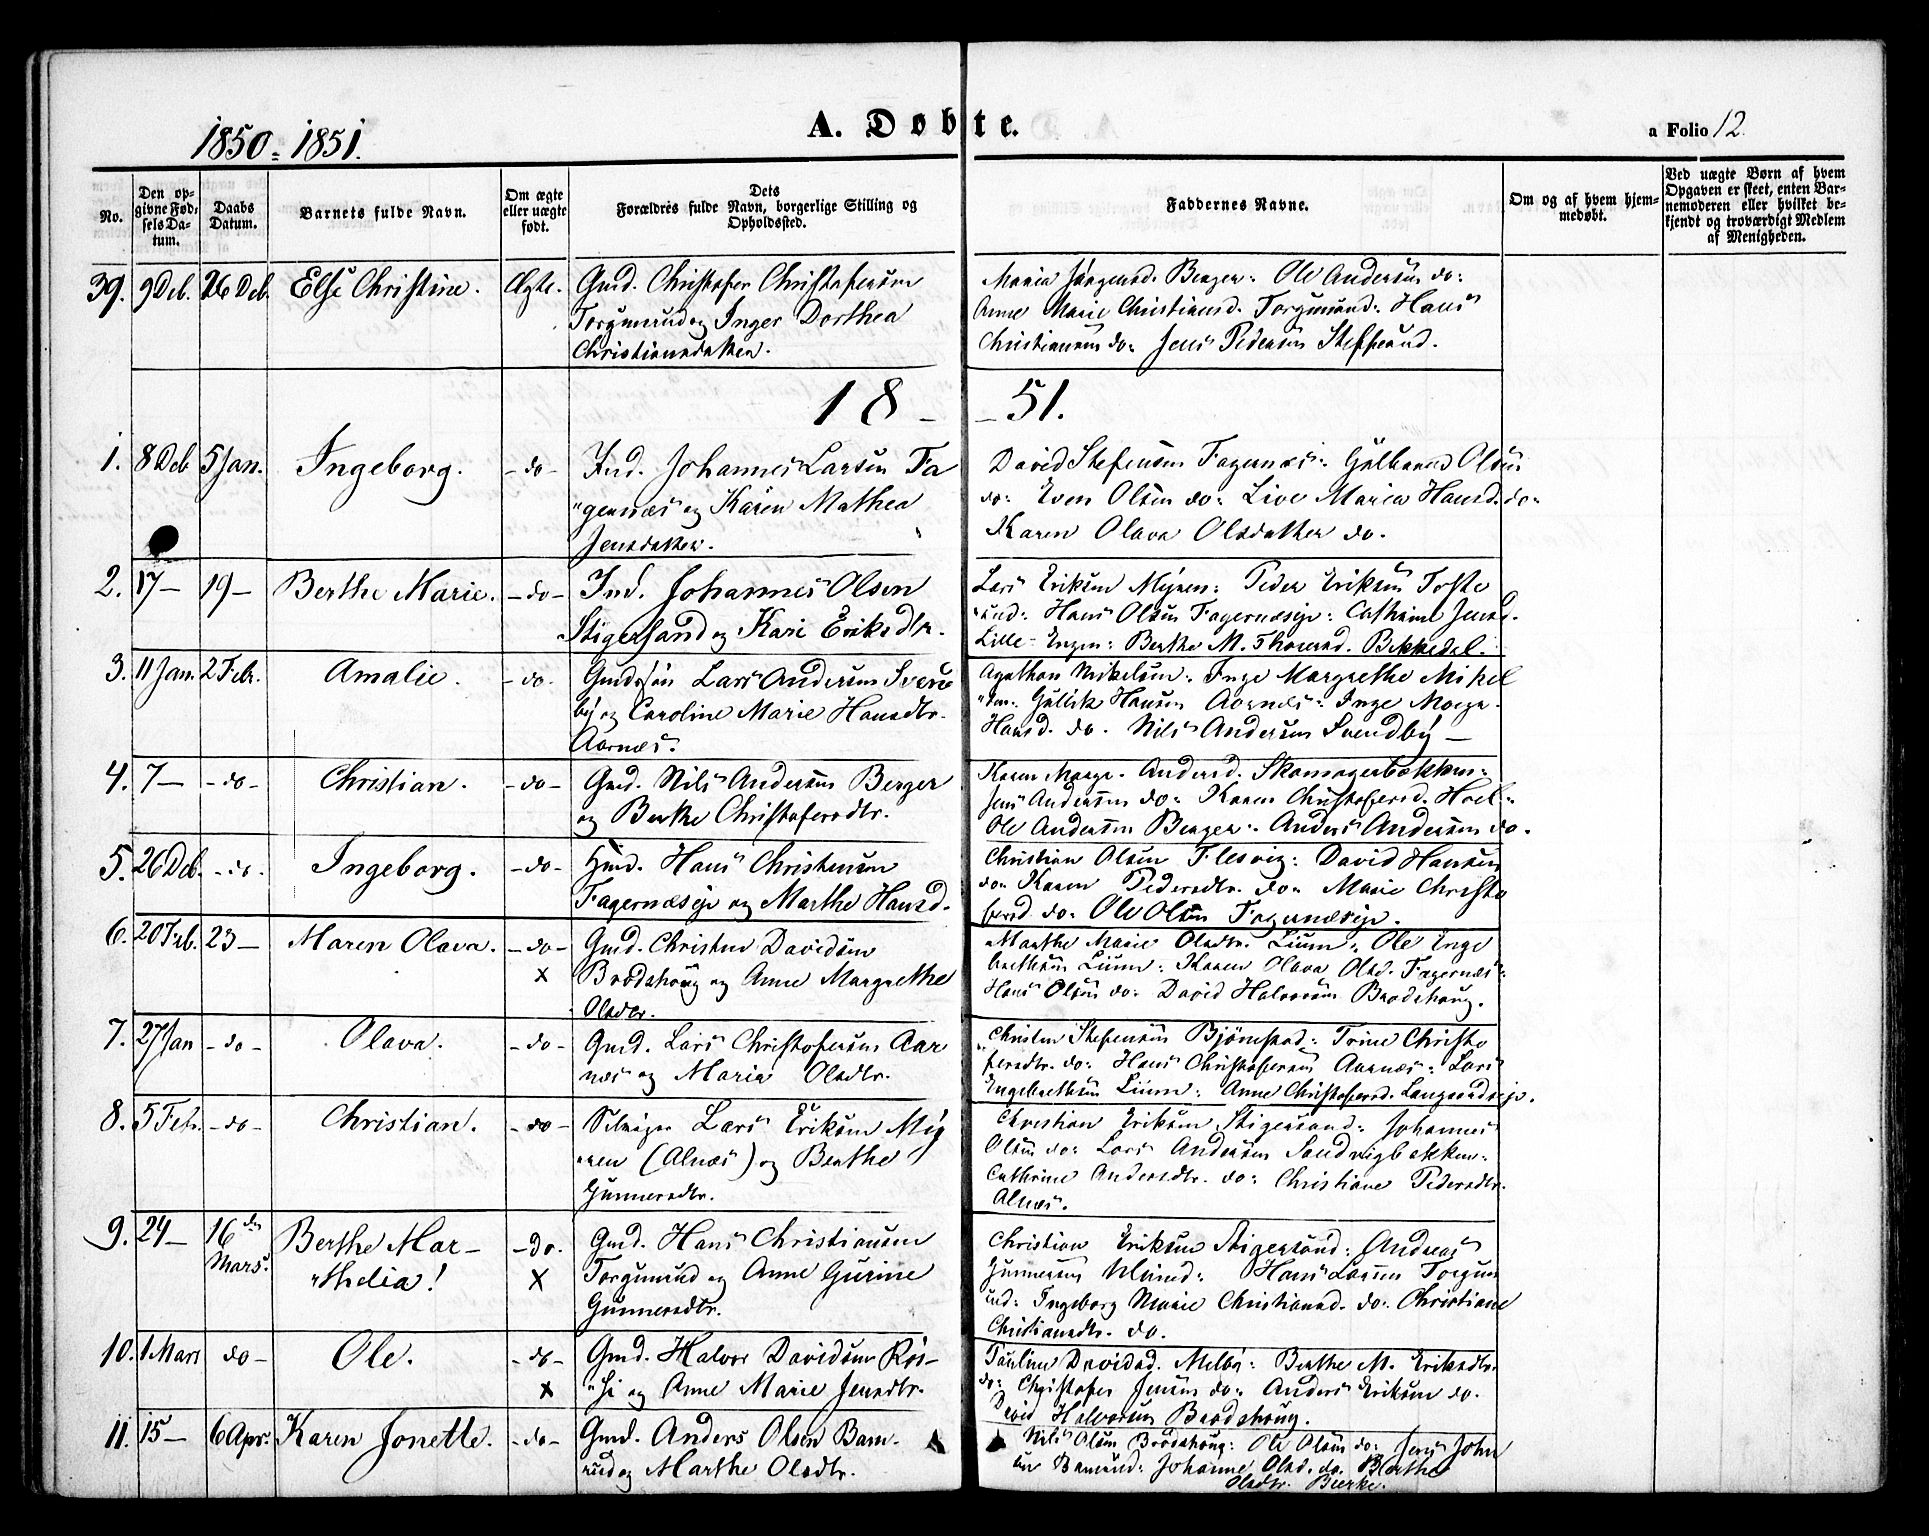 1850 - 1851.
A. Døbte.
a Folio 12.
No.
Den opgivne Fødsels Datum.
Daabs Datum.
Barnets fulde Navn.
Om ægte eller uægte født.
Dets Forældres fulde Navn, borgerlige Stilling og Opholdssted.
Faddernes Navne.
Om og af hvem hjemmedøbt.
Ved uægte Børn af hvem Opgaven er skeet, enten Barnemoderen eller hvilket bekjendt og troværdigt Medlem af Menigheden.
39. 9 Deb. 26 Deb. Else Christine. Ægte. Gmd. Christofer Christofersøn
Torgunrud og Inger Dorthea
Christiansdatter.
Maria Jørgensd. Berger: Ole Andersøn do:
Anne Marie Christiansd. Torgunrud: Hans
Christiansøn do: Jens Pedersøn Steffrud.
18 - - 51.
1. 8 Deb 5 Jan. Ingeborg. - do - Ind. Johannes Larsøn Fa
gernæs og Karen Mathea
Jensdatter.
David Stefensøn Fagernæs: Gulbrand Olsøn
do: Even Olsøn do: Live Maria Hansd. do:
Karen Olava Olsdatter do.
2. 17 - 19 - Berthe Marie. - do - Ind. Johannes Olsen
Stigersand og Kari Eriksdtr.
Lars Eriksøn Myren: Peder Eriksøn Tofte
rud: Hans Olsøn Fagernæseje: Cathrine Jensd.
Lille-Engen: Berthe M. Thorersd. Bekkedel.
3. 11 Jan. 2 Febr. Amalie. - do. Gmdssøn Lars Andersøn Svend
by og Caroline Marie Hansdtr.
Aarnæs.
Agathon Mikelsøn: Inge Margrethe Mikel
sen: Gullik Hansøn Aarnæs: Inge Marga.
Hansd. do. Nils Andersøn Svendby -
4. 7 - - do - Christian. - do - Gmd. Nils Andersøn Berger
og Berthe Christofersdtr.
Karen Margr. Andersd. Skomagerbækken:
Jens Andersøn do: Karen Christofersd. Hoel:
Ole Andersøn Berger: Anders Andersøn do.
5. 26 Deb. - do. Ingeborg. - do - Hmd. Hans Christensøn
Fagernæseje og Marthe Hansd.
Christian Olsøn Flesvig: David Hansøn
do: Karen Pedersdtr. do: Marie Christo
fersd. do: Ole Olsøn Fagernæseje.
6. 20 Feb. 23 - Maren Olava. - do - Gmd. Christen Davidsøn
x Brodshoug og Anne Margrethe
Olsdtr.
Marthe Marie Olsdtr. Lium: Ole Enge
bretsøn Lium: Karen Olava Olsd. Fagernæs:
Hans Olsøn do: David Halvorsøn Brodshoug.
7. 27 Jan - do - Olava. - do - Gmd. Lars Christofersøn Aar
næs og Maria Olsdtr.
Christen Stefensøn Bjørnstad: Trine Christo
fersdtr. do: Hans Christofersøn Aarnæs: Lars
Engelbrethsøn Lium: Anne Christofersd. Langsrudseje.
8. 5 Feb. - do - Christian. - do - Selveier Lars Eriksøn My
ren (Alnæs) og Berthe
Gunnersdtr.
Christian Eriksøn Stigersand: Johannes
Olsøn do: Lars Andersøn Sandvigbekken:
Cathrine Andersdtr. do: Christiane Pedersdtr.
Alnæs.
9. 24 - 16 den Mars. Berthe Mar-
thelia! - do. Gmd. Hans Christiansøn
x Torgunrud og Anne Gurine
Gunnersdtr.
Christian Eriksøn Stigersand: Andreas
Gunnersøn Ulsrud: Hans Larsen Torgun
rud: Ingeborg Marie Christiansd. do: Christiane
Christiansdtr. do.
10. 1 Mars do - Ole. - do - Gmd. Halvor Davidsøn Røs-
x og Anne Marie Jensdtr.
Pauline Davidsd. Melby: Berthe M. Eriksdtr.
do: Christofer Jensøn do: Anders Eriksøn do.
David Halvorsøn Brodshoug.
11. 15 - 6 Apr. Karen Jonette. - do - Gmd. Anders Olsen Bam-
rud og Marthe Olsdtr.
Nils Olsøn Brodshoug: Ole Olsøn do: Jens John
sen Bamrud: Johanne Olsd. do. Berthe
Olsdtr. Bierke.